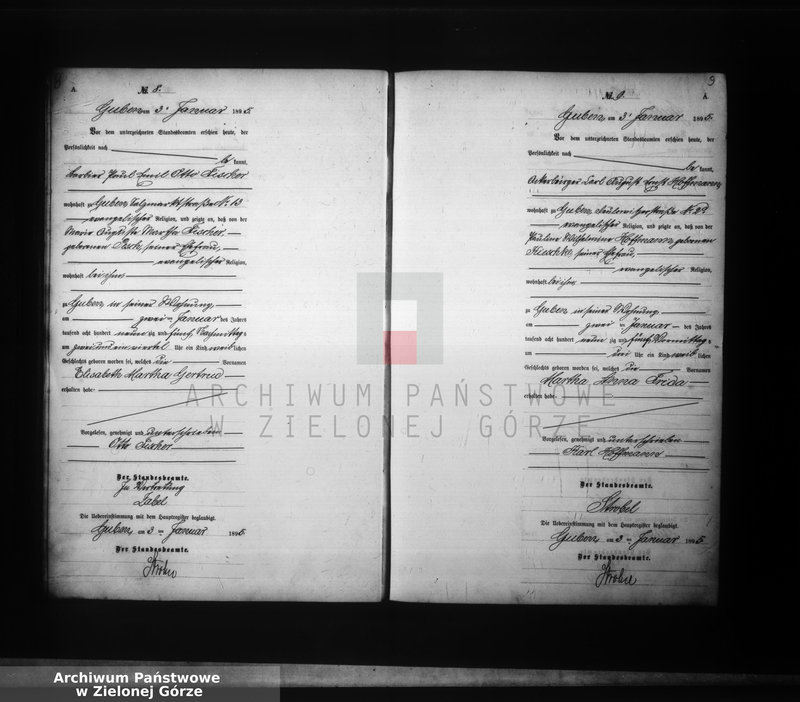 A.
№ 8.
Guben am 3ten Januar 1895.
Vor dem unterzeichneten Standesbeamten erschien heute, der
Persönlichkeit nach
be kannt,
Barbier Paul Emil Otto Fischer
wohnhaft zu Guben Salzmarktstraße № 13
evangelischer Religion, und zeigte an, daß von der
Marie Auguste Martha Fischer
geborenen seiner Ehefrau,
evangelischer Religion,
wohnhaft bei ihm
zu Guben in seiner Wohnung
am zwei ten Januar des Jahres
tausend acht hundert neun zig und fünf Nachmittag
um zweiundeinviertel Uhr ein Kind weib lichen
Geschlechts geboren worden sei, welches die Vornamen
Elisabeth Martha Gertrud
erhalten habe
Vorgelesen, genehmigt und unterschrieben
Otto Fischer
Der Standesbeamte.
In Vertretung
Zabel
Die Uebereinstimmung mit dem Hauptregister beglaubigt.
Guben am 3 ten Januar 1895.
Der Standesbeamte.
Strobel
9
№ 9.
A.
Guben am 3ten Januar 1895.
Vor dem unterzeichneten Standesbeamten erschien heute, der
Persönlichkeit nach
be kannt,
Ackerbürger Carl August Ernst Hoffmann
wohnhaft zu Guben № 29
evangelischer Religion, und zeigte an, daß von der
Pauline Wilhelmine Hoffmann geborenen
seiner Ehefrau,
evangelischer Religion,
wohnhaft bei ihm
zu Guben in seiner Wohnung
am zwei ten Januar des Jahres
tausend acht hundert neun zig und fünf Vormittag
um drei Uhr ein Kind weib lichen
Geschlechts geboren worden sei, welches die Vornamen
Martha Anna Frida
erhalten habe
Vorgelesen, genehmigt und unterschrieben
Karl Hoffmann
Der Standesbeamte.
Strobel
Die Uebereinstimmung mit dem Hauptregister beglaubigt.
Guben am 3 ten Januar 1895.
Der Standesbeamte.
Strobel
ARCHIWUM PAŃSTWOWE
W ZIELONEJ GÓRZE
Archiwum Państwowe
w Zielonej Górze